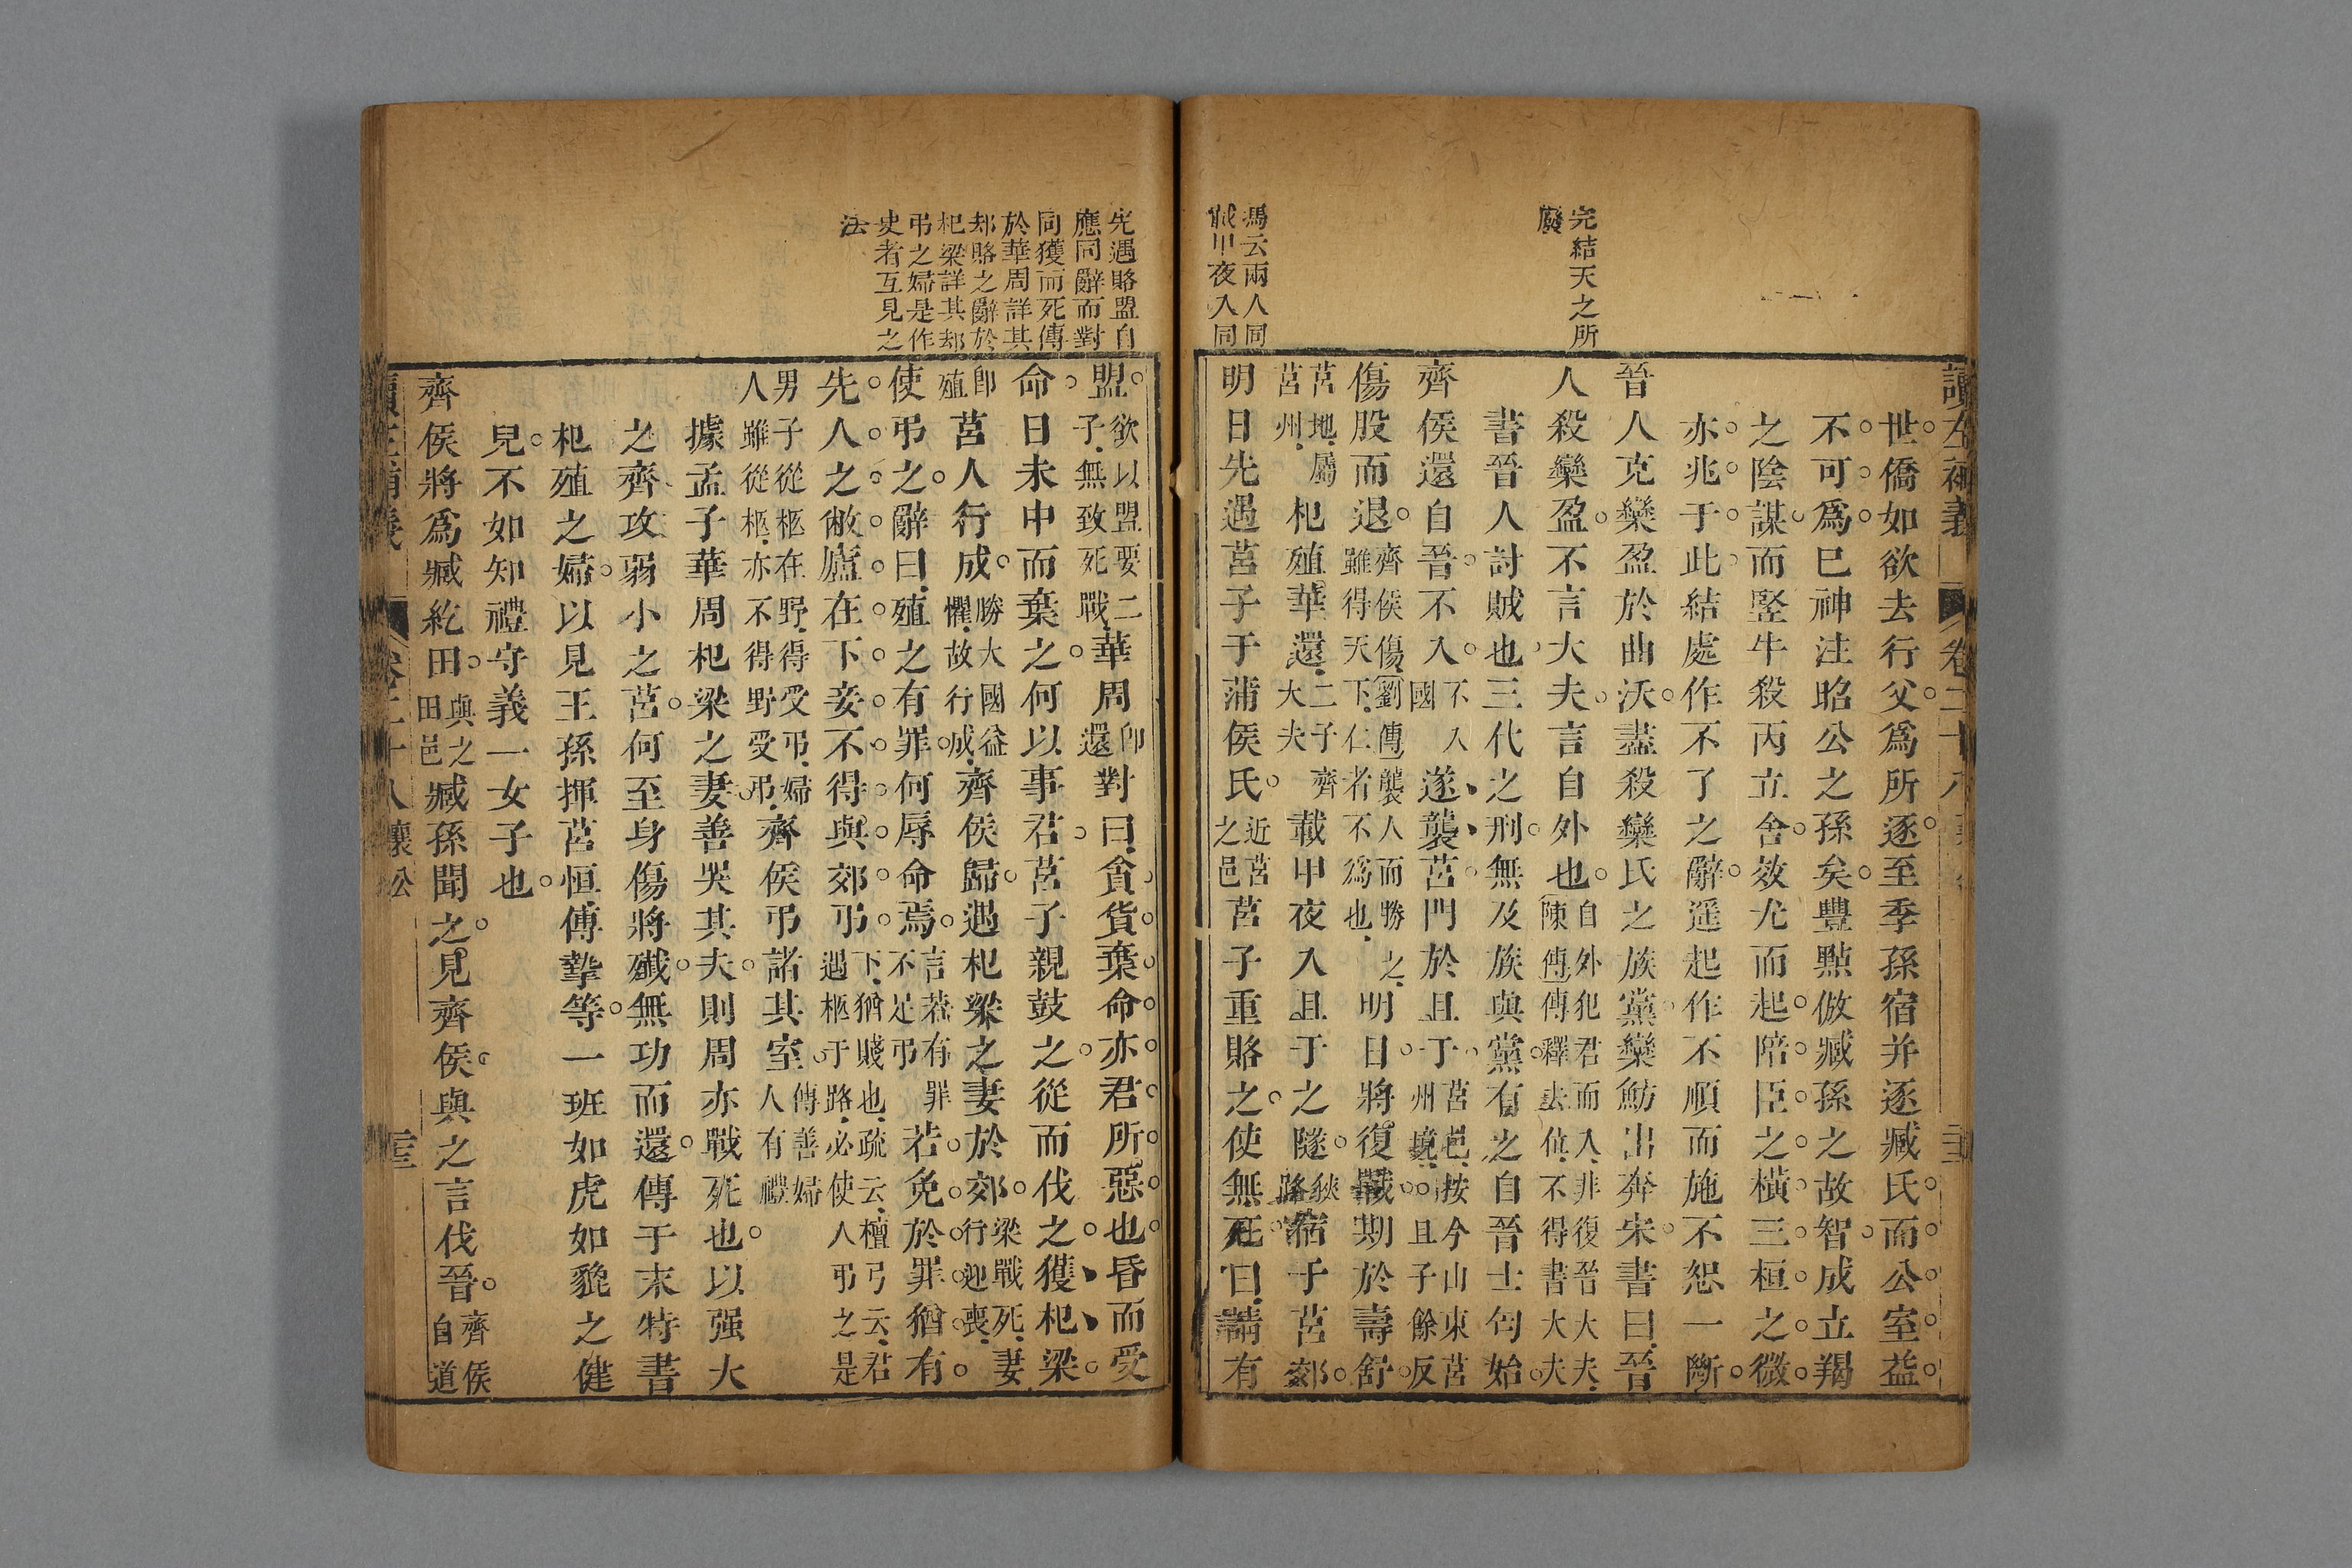 完結天之所
廢
馮云兩人同
載甲夜入同
讀左補義
卷二十八
世僑如欲去行父爲所逐至季孫宿并逐臧氏而公室益
不可爲巳神注昭公之孫矣豐點倣臧孫之故智成立羯
之陰謀而竪牛殺丙立舍效尤而起陪臣之橫三桓之微
亦兆于此結處作不了之辭遥起作不順而施不恕一斷
晉人克欒盈於曲沃盡殺欒氏之族黨欒魴出奔宋書曰晉
人殺欒盈不言大夫言自外也自外犯君而入非復晉大夫
陳傳傳釋去位不得書大夫
書晉人討賊也三代之刑無及族與黨有之自晉士匄始
齊侯還自晉不入不入
國遂襲莒門於且于莒邑按今山東莒
州境且子餘反
傷股而退齊侯傷劉傳襲人而勝之
雖得天下仁者不爲也明日將復戰期於壽舒
莒地屬
莒州杞殖華還二子齊
大夫載甲夜入且于之隧狹
路宿于莒郊
明日先遇莒子于蒲侯氏近莒
之邑莒子重賂之使無死曰請有
先遇賂盟自
應同辭而對
同獲而死傳
於華周詳其
却賂之辭於
杞梁詳其却
弔之婦是作
史者互見之
法
盟欲以盟要二
子無致死戰華周卽
還對曰貪貨棄命亦君所惡也昏而受
命日未中而棄之何以事君莒子親鼓之從而伐之獲杞梁
卽
殖莒人行成勝大國益
懼故行成齊侯歸遇杞梁之妻於郊梁戰死妻
行迎喪
使弔之辭曰殖之有罪何辱命焉言若有罪
不足弔若免於罪猶有
先人之敝廬在下妾不得與郊弔下猶賤也疏云檀弓云君
遇柩于路必使人弔之是
男子從柩在野得受弔婦
人雖從柩亦不得野受弔齊侯弔諸其室傳善婦
人有禮
據孟子華周杞梁之妻善哭其夫則周亦戰死也以强大
之齊攻弱小之莒何至身傷將殲無功而還傳于末特書
杞殖之婦以見王孫揮莒恒傅摯等一班如虎如貔之健
兒不如知禮守義一女子也
齊侯將爲臧紇田與之
田邑臧孫聞之見齊侯與之言伐晉齊侯
自道
襄公